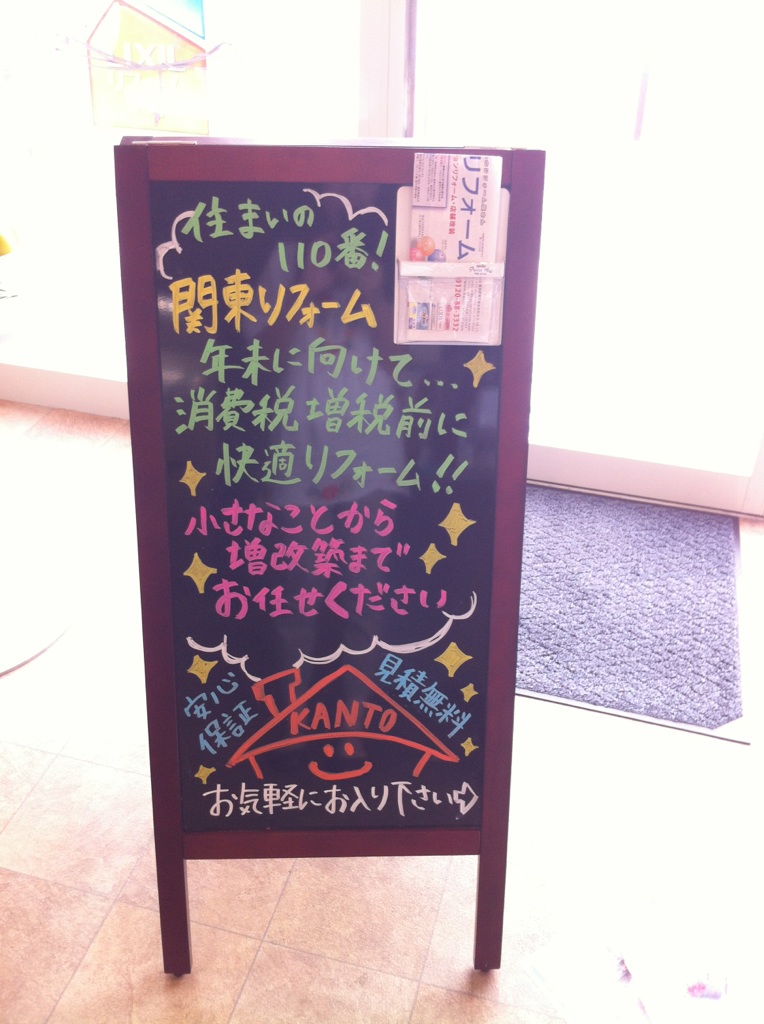 住まいの
110番!
関東リフォーム
年末に向けて...
消費税増税前に
快適リフォーム!!
小さなことから
増改築まで
お任せください
安心
保証
見積無料
KANTO
お気軽にお入り下さい
リフォーム